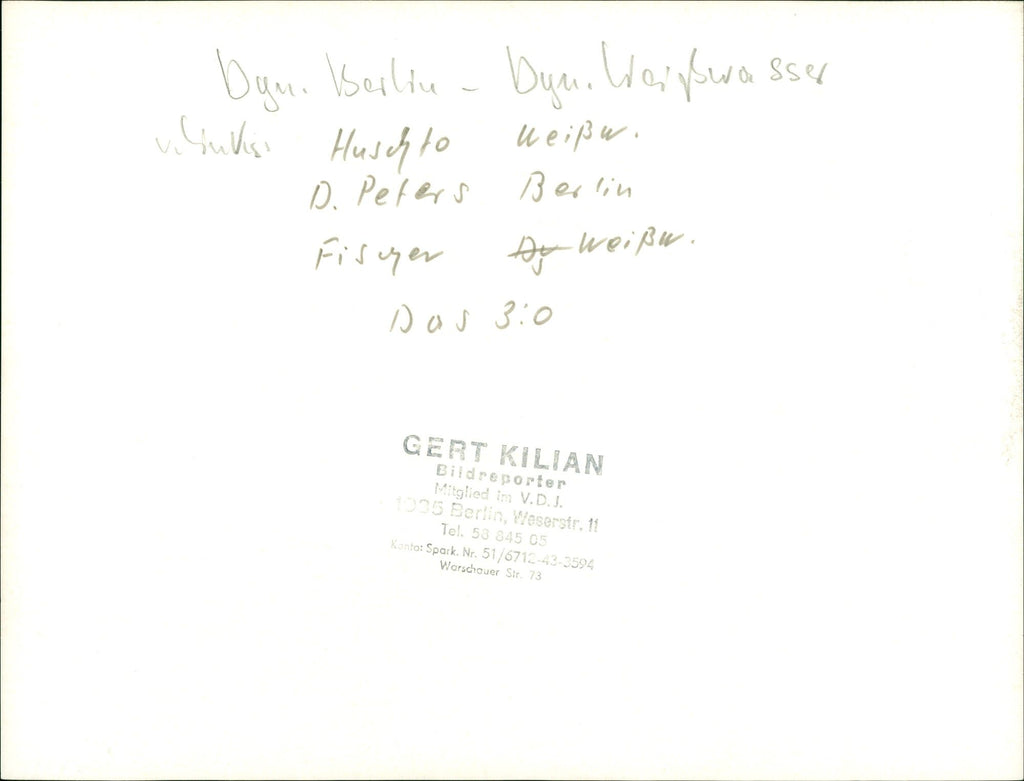 Dyn. Berlin – Dyn. Weißwasser
v. links: Huschto Weißw.
D. Peters Berlin
Fischer Dy Weißw.
Das 3:0
GERT KILIAN
Bildreporter
Mitglied im V.D.J.
1035 Berlin, Weserstr. 11
Tel. 58 845 05
Kontor Spark. Nr. 51/6712-43-3594
Warschauer Str. 73